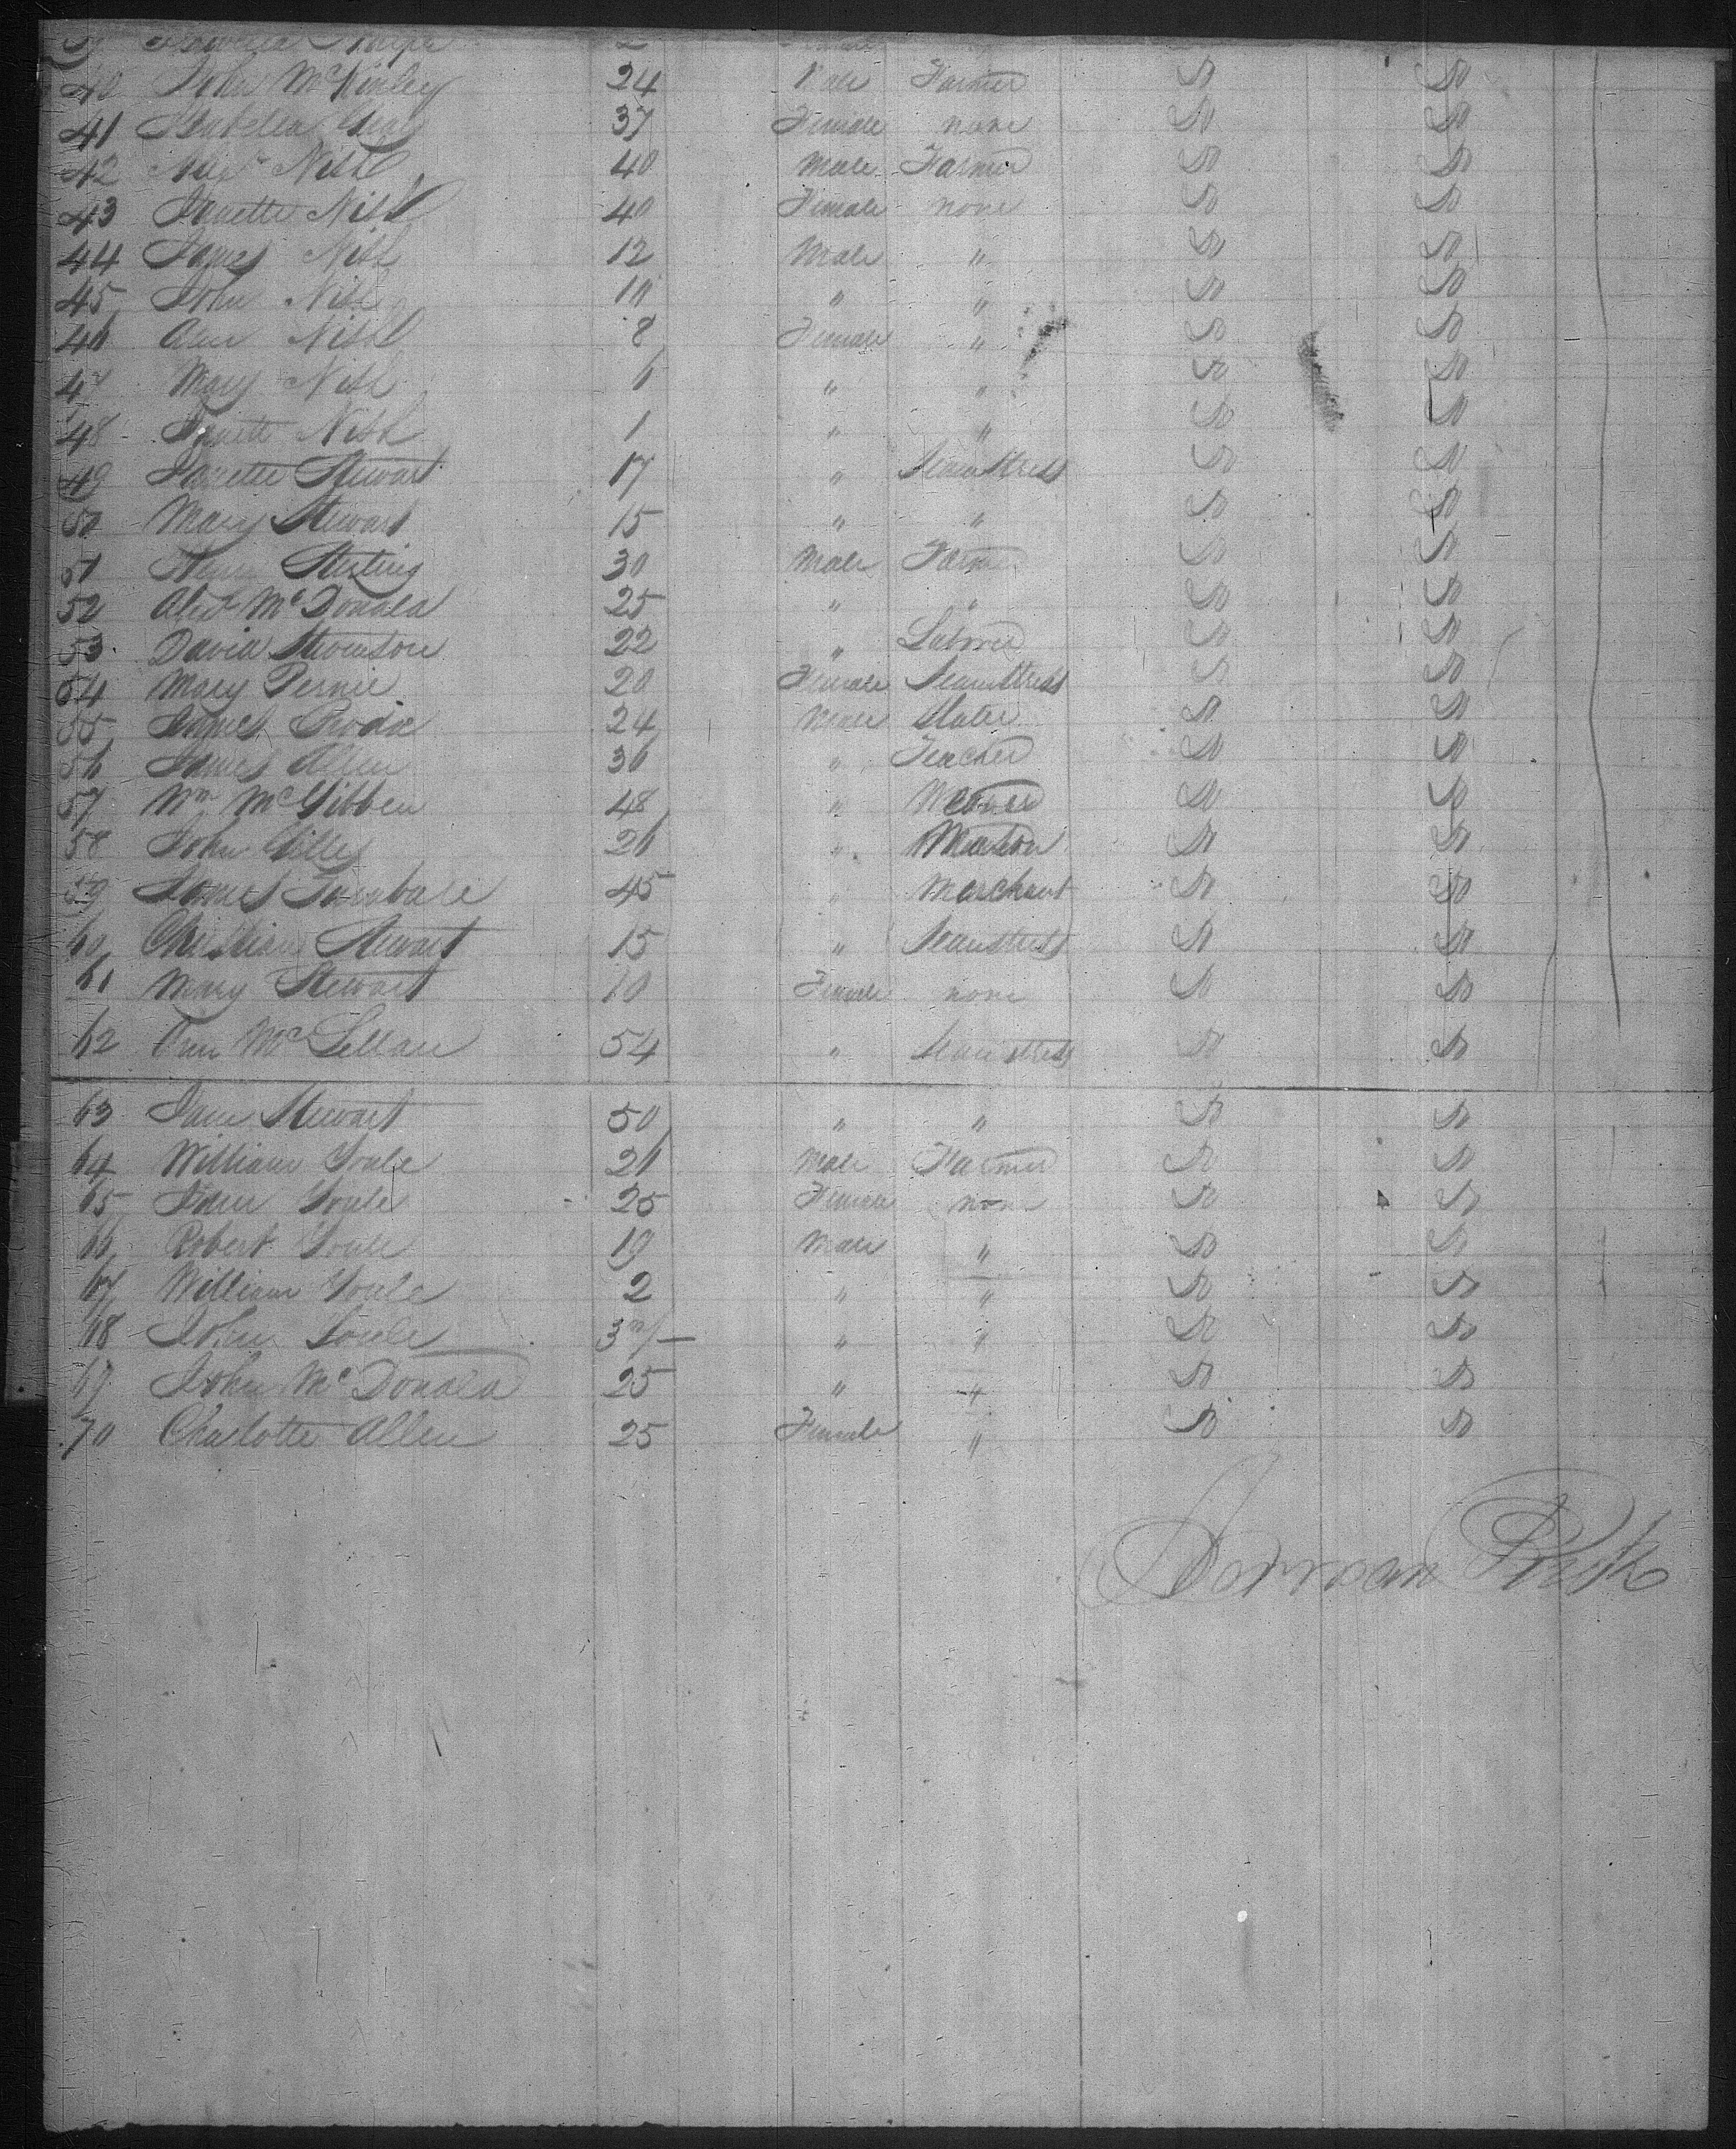 40 John McKinley 24 Male Farmer Do Do
41 Isabella Gray 37 Female none Do Do
42 Alexr Nish 40 Male Farmer Do Do
43 Jenette Nish 40 Female none Do Do
44 James Nish 12 Male " Do Do
45 John Nish 10 " " Do Do
46 Ann Nish 8 Female " Do Do
47 Mary Nish 6 " " Do Do
48 Nish 1 " " Do Do
49 Stewart 17 " Seamstress Do Do
50 Mary Stewart 15 " " Do Do
51 Sterling 30 Male Farmer Do Do
52 Alexr McDonald 25 " " Do Do
53 David Stevenson 22 " Laborer Do Do
54 Mary Pernie 20 Female Seamstress Do Do
55 James Brodie 24 Male Slater Do Do
56 James Allen 36 " Teacher Do Do
57 Wm McGibben 48 " Weaver Do Do
58 John Gilles 26 " Mason Do Do
59 James Turnbale 45 " Merchant Do Do
60 Christian Stewart 15 " Seamstress Do Do
61 Mary Stewart 10 Female none Do Do
62 Ann McLellan 54 " Seamstress Do Do
63 Jane Stewart 50 " " Do Do
64 William Goule 26 Male Farmer Do Do
65 Jane Goule 25 Female none Do Do
66 Robert Goule 19 Male " Do Do
67 William Goule 2 " " Do Do
68 John Goule 3 m/- " " Do Do
69 John McDonald 25 " " Do Do
70 Charlotte Allen 25 Female " Do Do